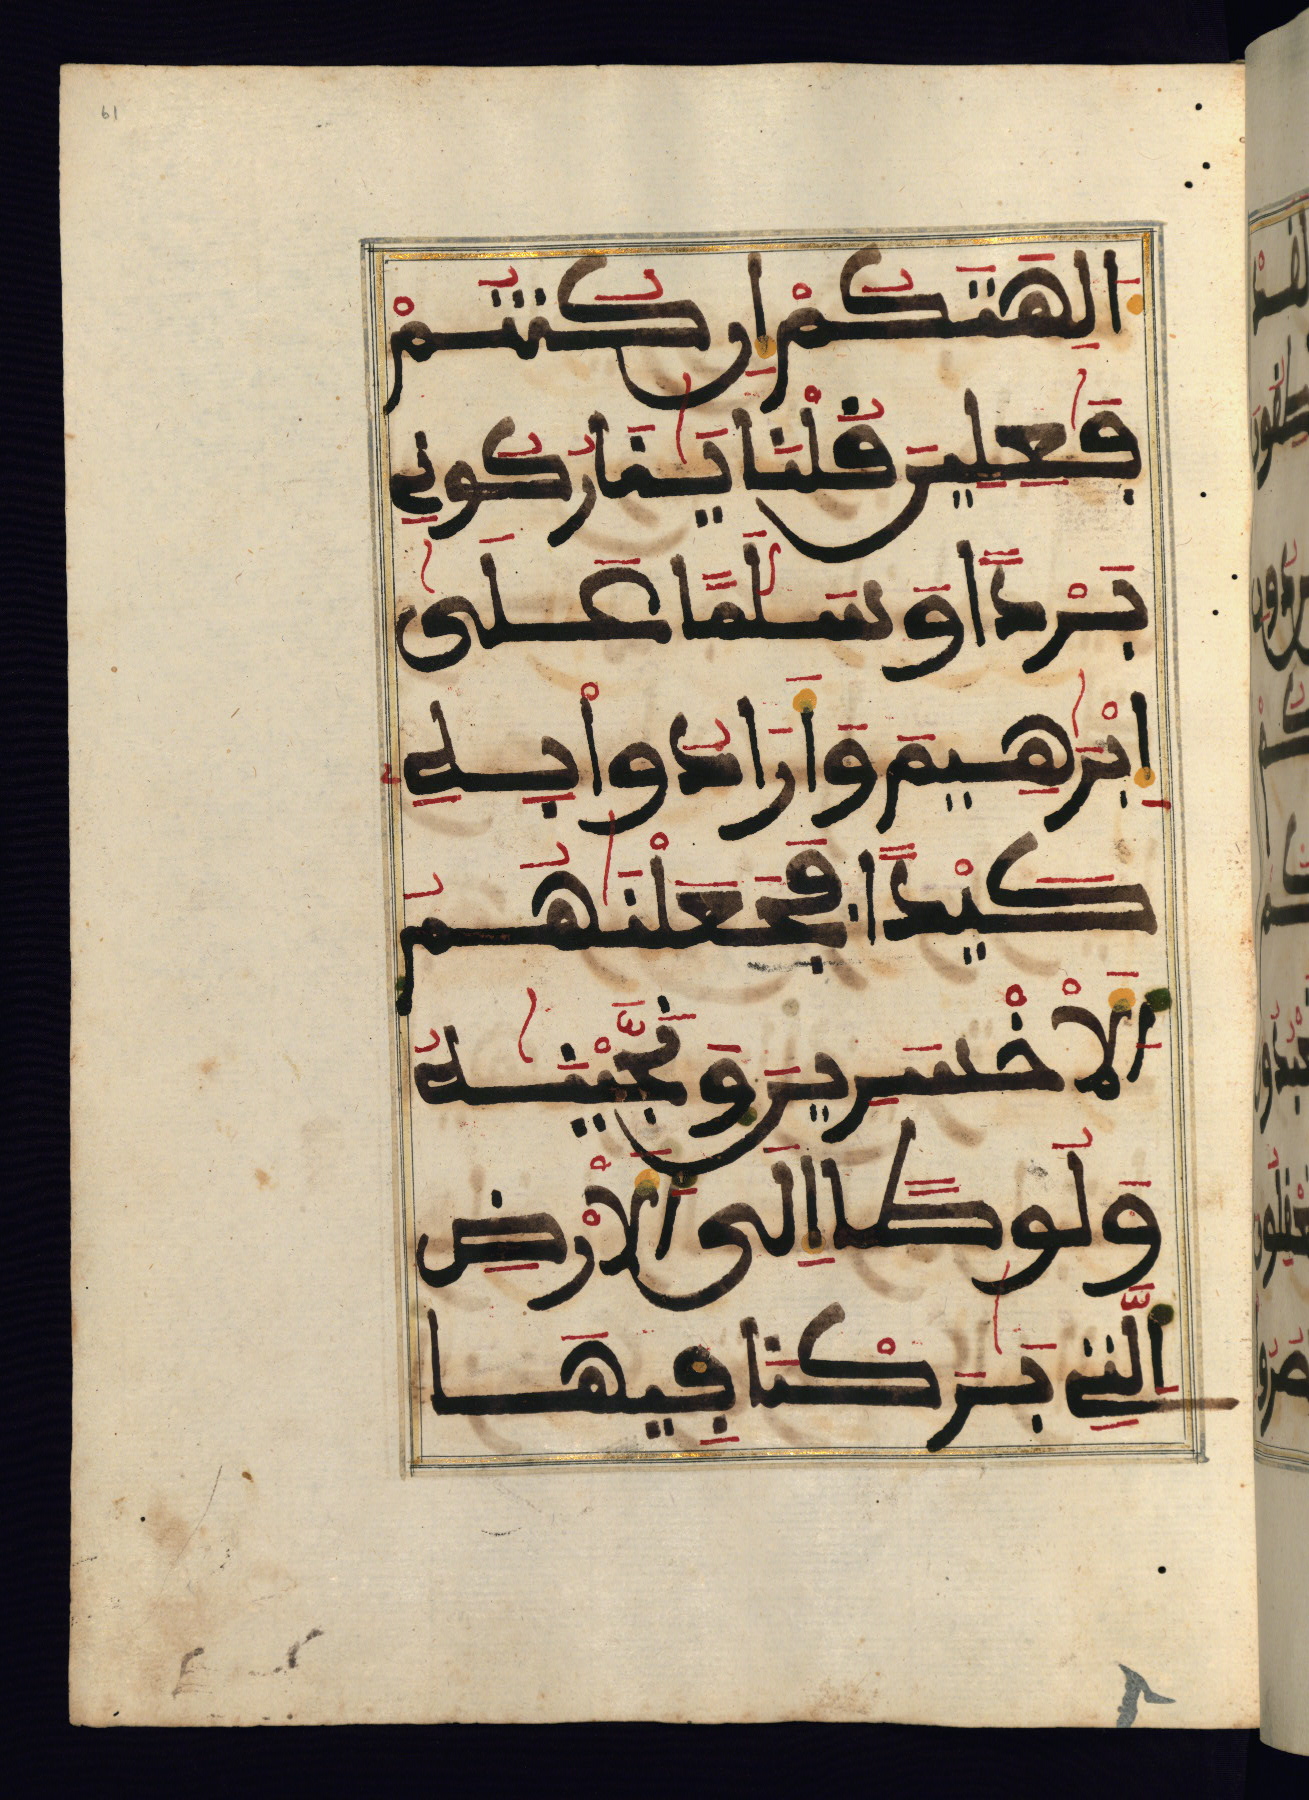 61
ءَالِهَتَكُمْ إِن كُنتُمْ
فَٰعِلِينَ قُلْنَا يَٰنَارُ كُونِي
بَرْدًا وَسَلَٰمًا عَلَىٰ
إِبْرَٰهِيمَ وَأَرَادُواْ بِهِ
كَيْدًا فَجَعَلْنَٰهُمُ
الَأْخْسَرِينَ وَنَجَّيْنَٰهُ
وَلُوطًا إِلَى الَأْرْضِ
الَّتِي بَٰرَكْنَا فِيهَا